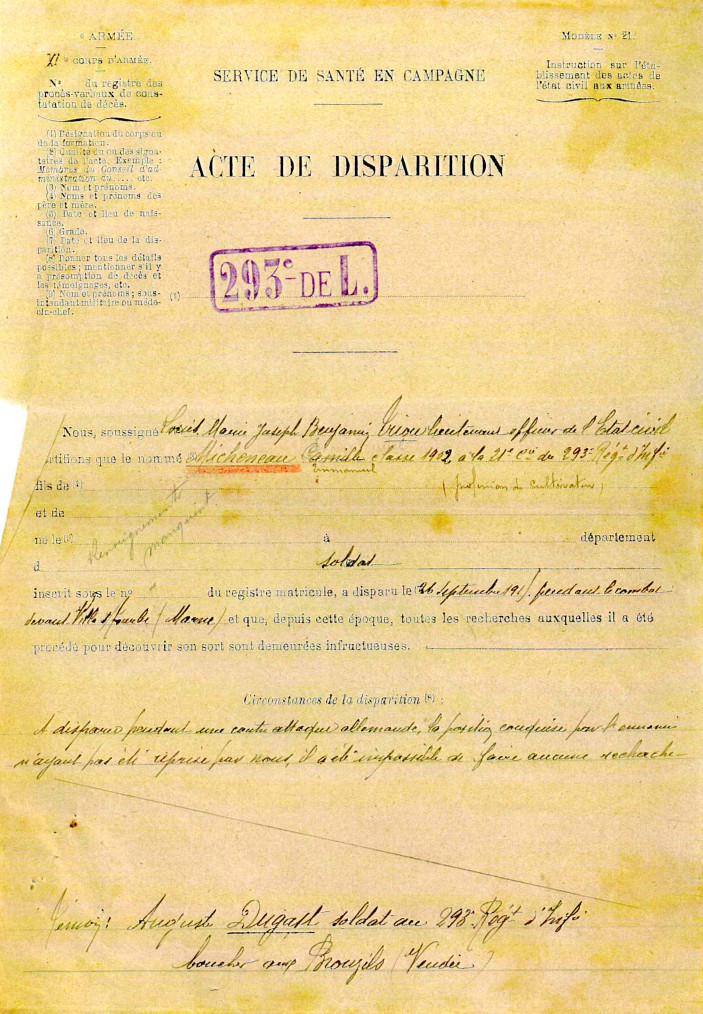 e ARMÉE
XI e CORPS D'ARMÉE.
N° du registre des
procès-verbaux de cons-
tatation de décès.
MODÈLE N° 21.
Instruction sur l'éta-
blissement des actes de
l'état civil aux armées.
SERVICE DE SANTÉ EN CAMPAGNE
(1) Désignation du corps ou
de la formation.
(2) Qualité du ou des signa-
taires de l'acte. Exemple :
Membres du Conseil d'ad-
ministration du.... etc.
(3) Nom et prénoms.
(4) Noms et prénoms des
père et mère.
(5) Date et lieu de nais-
sance.
(6) Grade.
(7) Date et lieu de la dis-
parition.
(8) Donner tous les détails
possibles ; mentionner s'il y
a présomption de décès et
les témoignages, etc.
(9) Nom et prénoms ; sous-
intendant militaire ou méde-
cin-chef.
ACTE DE DISPARITION
(1)
293e DE L.
Nous, soussigné Louis Marie Joseph Benjamin Triou lieutenant officier de l'Etat civil
certifions que le nommé Micheneau Camille classe 1902 à la 21e Cie du 293e Régt d'Infie
Emmanuel
fils de (4) (profession de cultivateur)
et de
Renseignements
manquent
né le (5) à département
d soldat
inscrit sous le n° du registre matricule, a disparu le 26 septembre 191 pendant le combat
devant Ville s/Tourbe (Marne) et que, depuis cette époque, toutes les recherches auxquelles il a été
procédé pour découvrir son sort sont demeurées infructueuses.
Circonstances de la disparition (8) :
A disparu pendant une contre attaque allemande, la position conquise par l'ennemi
n'ayant pas été reprise par nous, il a été impossible de faire aucune recherche
Témoin : Auguste Dugast soldat au 293e Régt d'Infie
boucher aux Brouzils (Vendée)